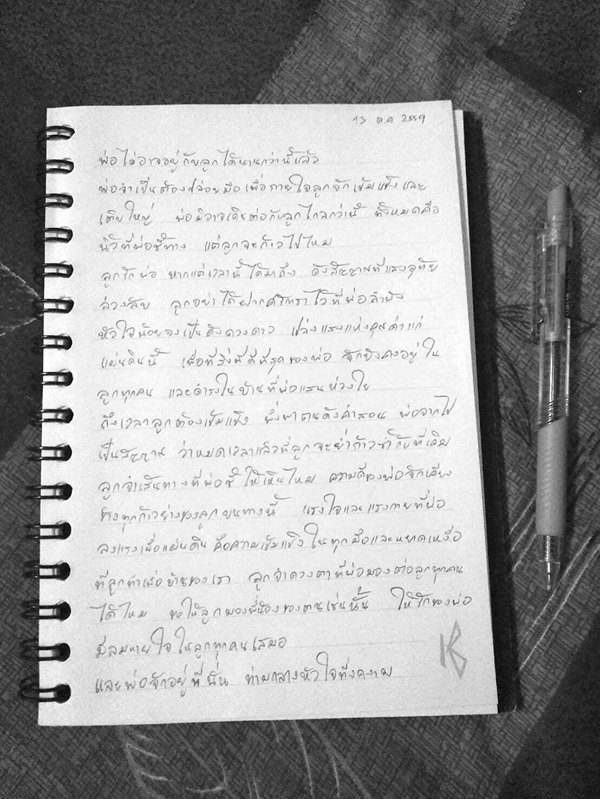 13 ต.ค 2559
พ่อไม่อาจอยู่กับลูกได้นานกว่านี้แล้ว
พ่อจำเป็นต้องปล่อยมือเพื่อภายใจลูกจักเข้มแข็งและ
เติบใหญ่ พ่อมิอาจเดินต่อกับลูกไกลกว่านี้ ทั้งหมดคือ
นิ้วที่พ่อชี้ทาง แต่ลูกจะก้าวไปไหม
ลูกรักพ่อ หากแต่เวลานี้ได้มาถึง ดังสัญญาณที่แสงอุทัย
ล่วงลับ ลูกอย่าได้ฝากศรัทธาไว้ที่พ่อลำพัง
หัวใจน้อยจงเป็นดั่งดวงดาว เปล่งแสงแห่งคุณค่าแก่
แผ่นดินนี้ เพื่อที่สิ่งที่ดีที่สุดของพ่อ จักยังคงอยู่ใน
ลูกทุกคน และดำรงในบ้านที่พ่อแสนห่วงใย
ถึงเวลาลูกต้องเข้มแข็ง พึ่งพาตนดังคำสอน พ่อจากไป
เป็นสัญญาณ ว่าหมดเวลาแล้วที่ลูกจะย่ำก้าวซ้ำกับที่เดิม
ลูกจำเส้นทางที่พ่อชี้ให้เห็นไหม ความดีของพ่อจักเคียง
ข้างทุกก้าวย่างของลูกบนทางนี้ แรงใจและแรงกายที่พ่อ
ลงแรงเพื่อแผ่นดิน คือความเข้มแข็งในทุกมือและหยาดเหงื่อ
ที่ลูกทำเพื่อบ้านของเรา ลูกจำดวงตาที่พ่อมองต่อลูกทุกคน
ได้ไหม ขอให้ลูกมองพี่น้องของตนเช่นนั้น ให้รักของพ่อ
มีลมหายใจในลูกทุกคนเสมอ
และพ่อจักอยู่ที่นั่น ท่ามกลางหัวใจที่งดงาม